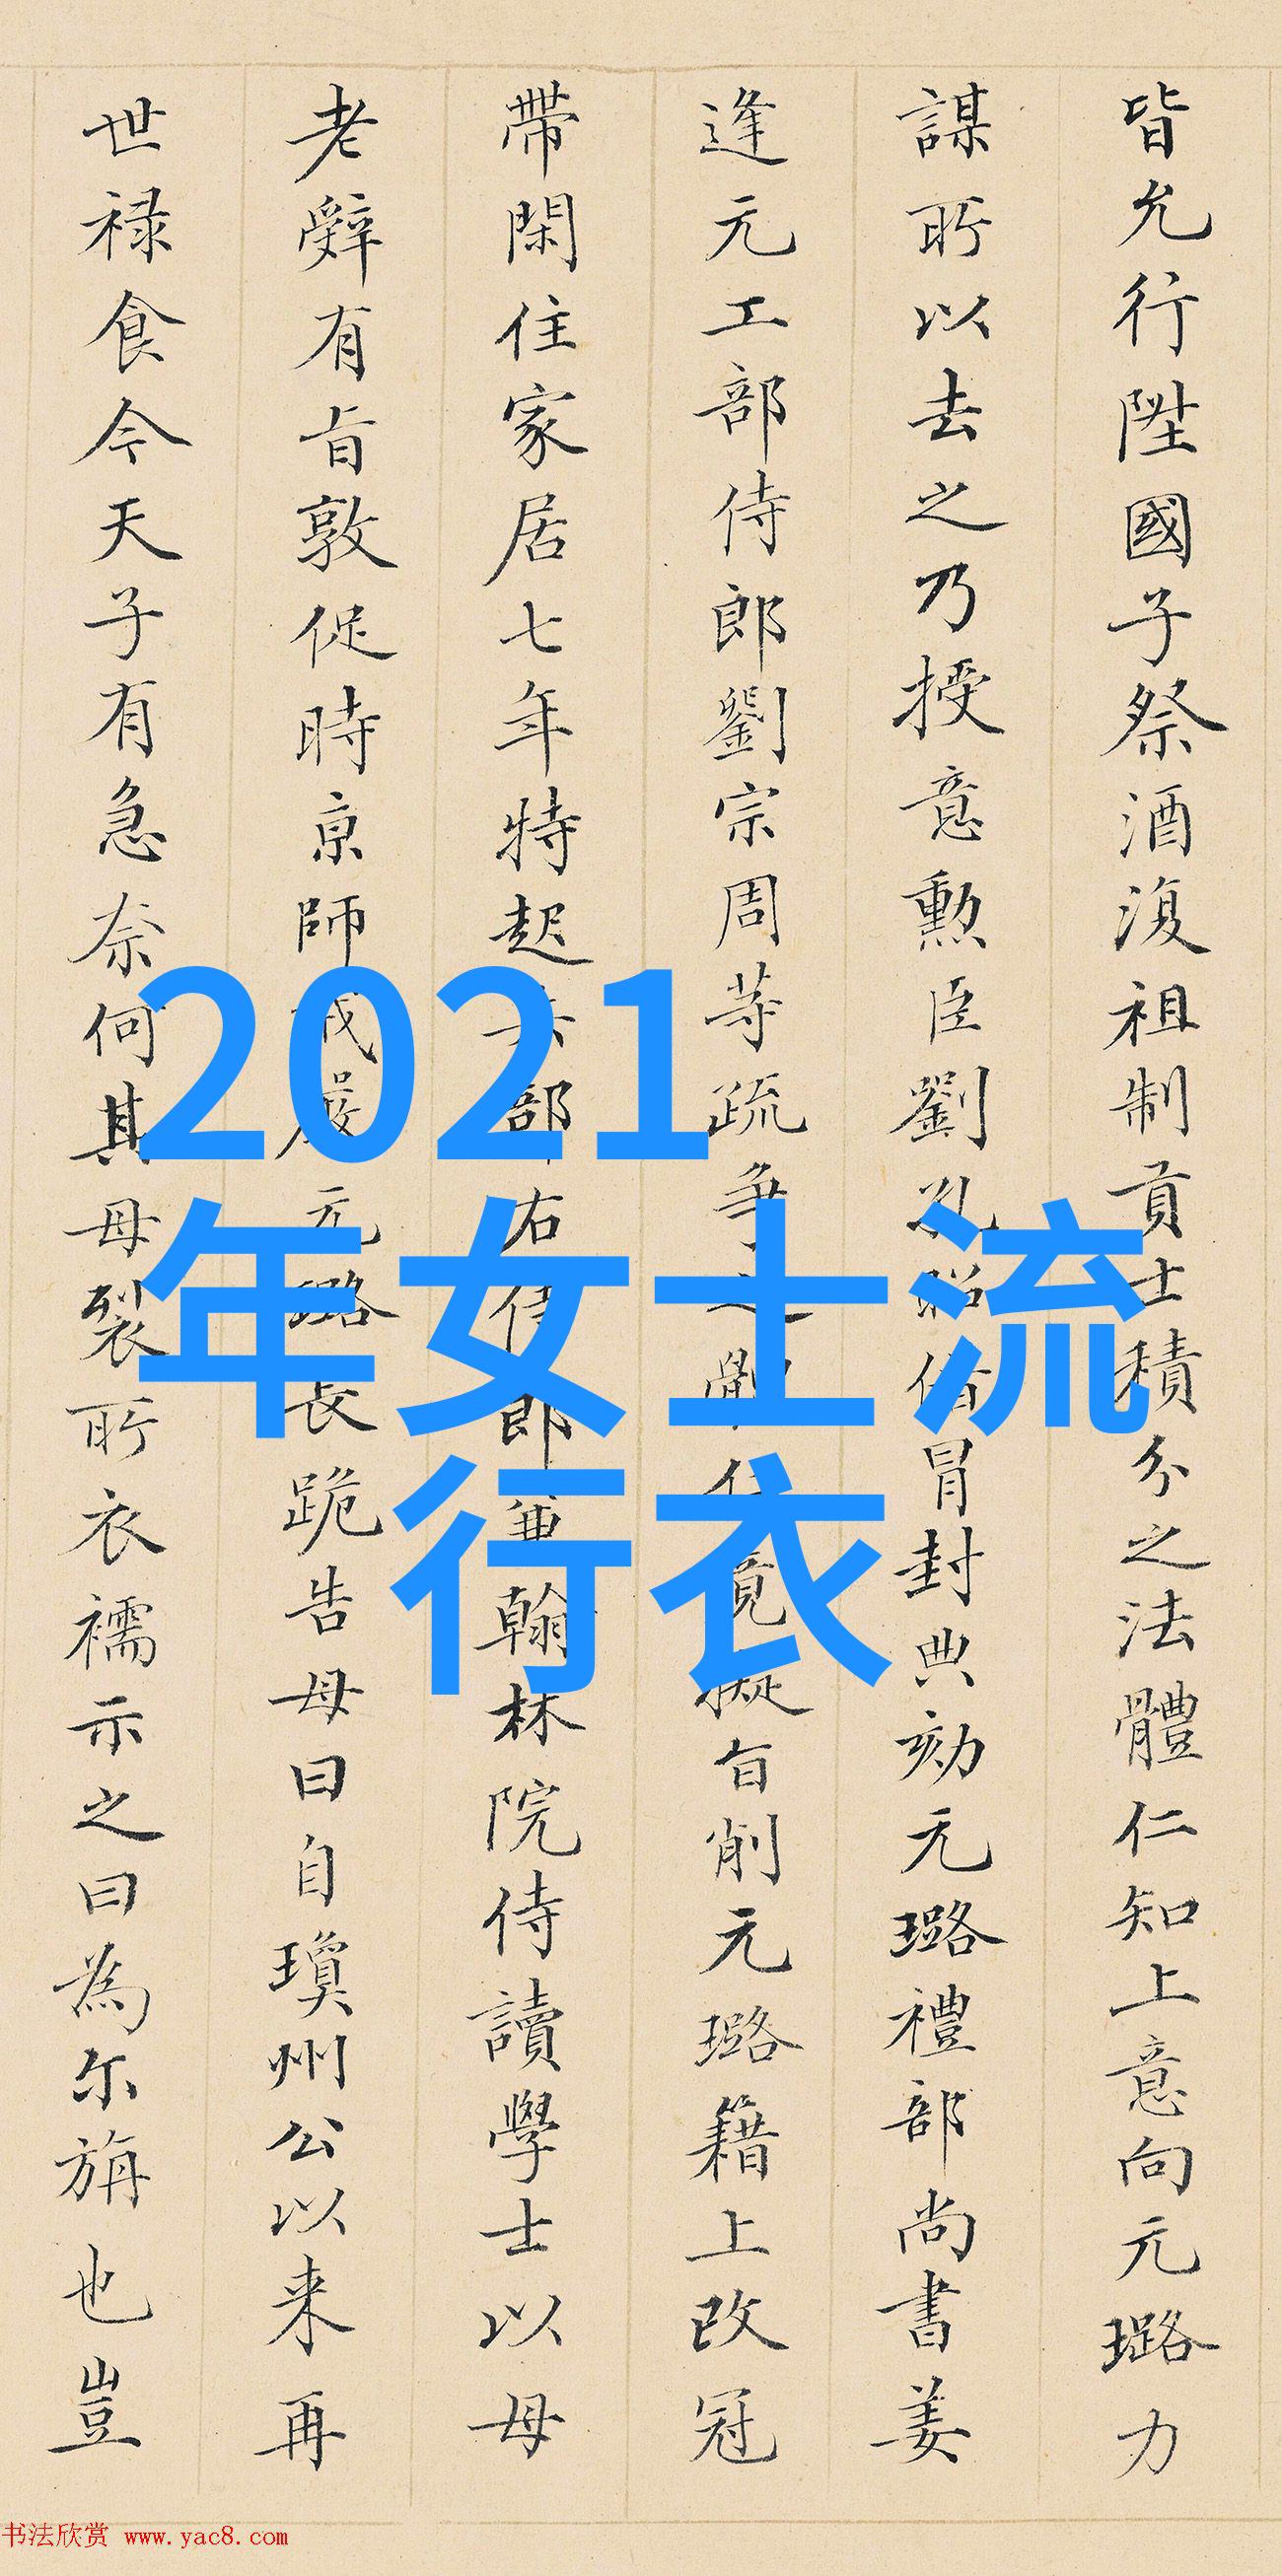 皆允行陞國子祭酒復祖制貢士積分之法體仁知上意向元璐力
謀所以去之乃授意勲臣劉孔昭借冒封典劾元璐禮部尚書姜
逢元工部侍郎劉宗周等疏爭擬旨削元璐籍上改冠
帶閑住家居七年特起兵部右侍郎兼翰林院侍讀學士以母
老辭有旨敦促時京師戒嚴元璐長跪告母曰自瓊州公以来再
世禄食今天子有急奈何其母裂所衣襦示之曰為尔旃也豈
2021
年女士流
行衣
书法欣赏 www.yac8.com